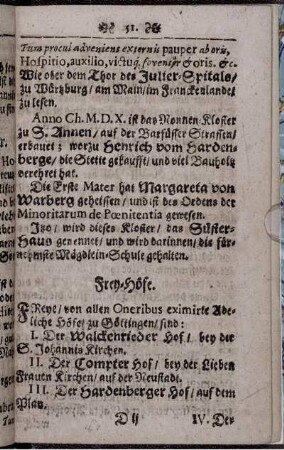 31.
Tum procul adveniens externis pauper ab oris,
Hospitio, auxilio, victuq, fovetur & oris. &c.
Wie ober dem Thor des Julier-Spitals/
zu Würzburg/ am Main/ im Franckenlande/
zu lesen.
Anno Ch. M.D.X. ist das Nonnen-Kloster
zu S. Annen/ auf der Barfüsser Strassen/
erbauet; worzu Henrich vom Harden-
berge/ die Stette gekaufft/ und viel Bauholtz
verehret hat.
Die Erste Mater hat Margareta von
Warberg geheissen/ und ist des Ordens der
Minoritarum de Pœnitentia gewesen.
Itzo/ wird dieses Kloster/ das Süster-
Haus genennet/ und wird darinnen/ die für-
nehmste Mägdlein-Schule gehalten.
Frey-Höfe.
FReye/ von allen Oneribus eximirte Ade-
liche Höfe/ zu Göttingen/ sind:
I. Der Walckenrieder Hof/ bey der
S. Johannis Kirchen.
II. Der Compter Hof/ bey der Lieben
Frauen Kirchen/ auf der Neustadt.
III. Der Hardenberger Hof/ auf dem
Plan.
D ij
IV. Der